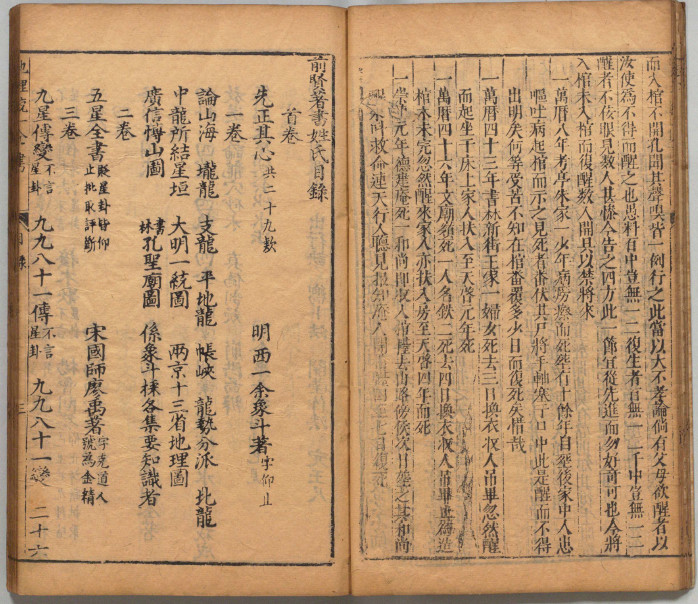 而入棺不開孔聞其聲嗅皆一例行之此當以大不孝論倘有父母欲醒者以
汝使為不得而醒之也思料百中豈無一二復生者百無一二千中豈無一二
醒者不依眼見數人甚慘今告之四方此一節宜從先進而勿好前可也今將
入棺未入棺而復醒數人開具以禁將來
一萬曆八年考亭朱家一少年病房勞而死葬有十餘年日葬後家中人患
嘔吐病起棺而示之見死者番伏其尸將手 口中此是醒而不得
出明矣何等受苦不知在棺番覆多少日而復死矣惜哉
一萬曆四十三年書林新街王家一婦女死去三日換衣收人吊畢忽然醒
而起坐于床上家人扶入至天啓元年死
一萬曆四十六年文廟須死一人名 二死去四日換衣收人吊畢
棺木未完忽然醒來家人亦扶入房至天啓四年而死
元年德 庵死一和尚
叫救命連天行人聽見報知庵人
前賢著書姓氏目錄
首卷
先正其心 共二十九欵 明 西一余象斗著 字仰止
一卷
論山海 壠龍 支龍 平地龍 帳峽 龍勢分派 北龍
中龍所結星垣 大明一統圖 兩京十三省地理圖
廣信博山圖 書林孔聖廟圖 係象斗採各集要知識者
二卷
五星全書 貶星卦皆仰止批取評斷 宋國師廖禹著 字堯道人號為金精
三卷
九星傳變 不言星卦 九九八十一傳 不言星卦 九九八十一變 二十六
地理 全書 目錄 三